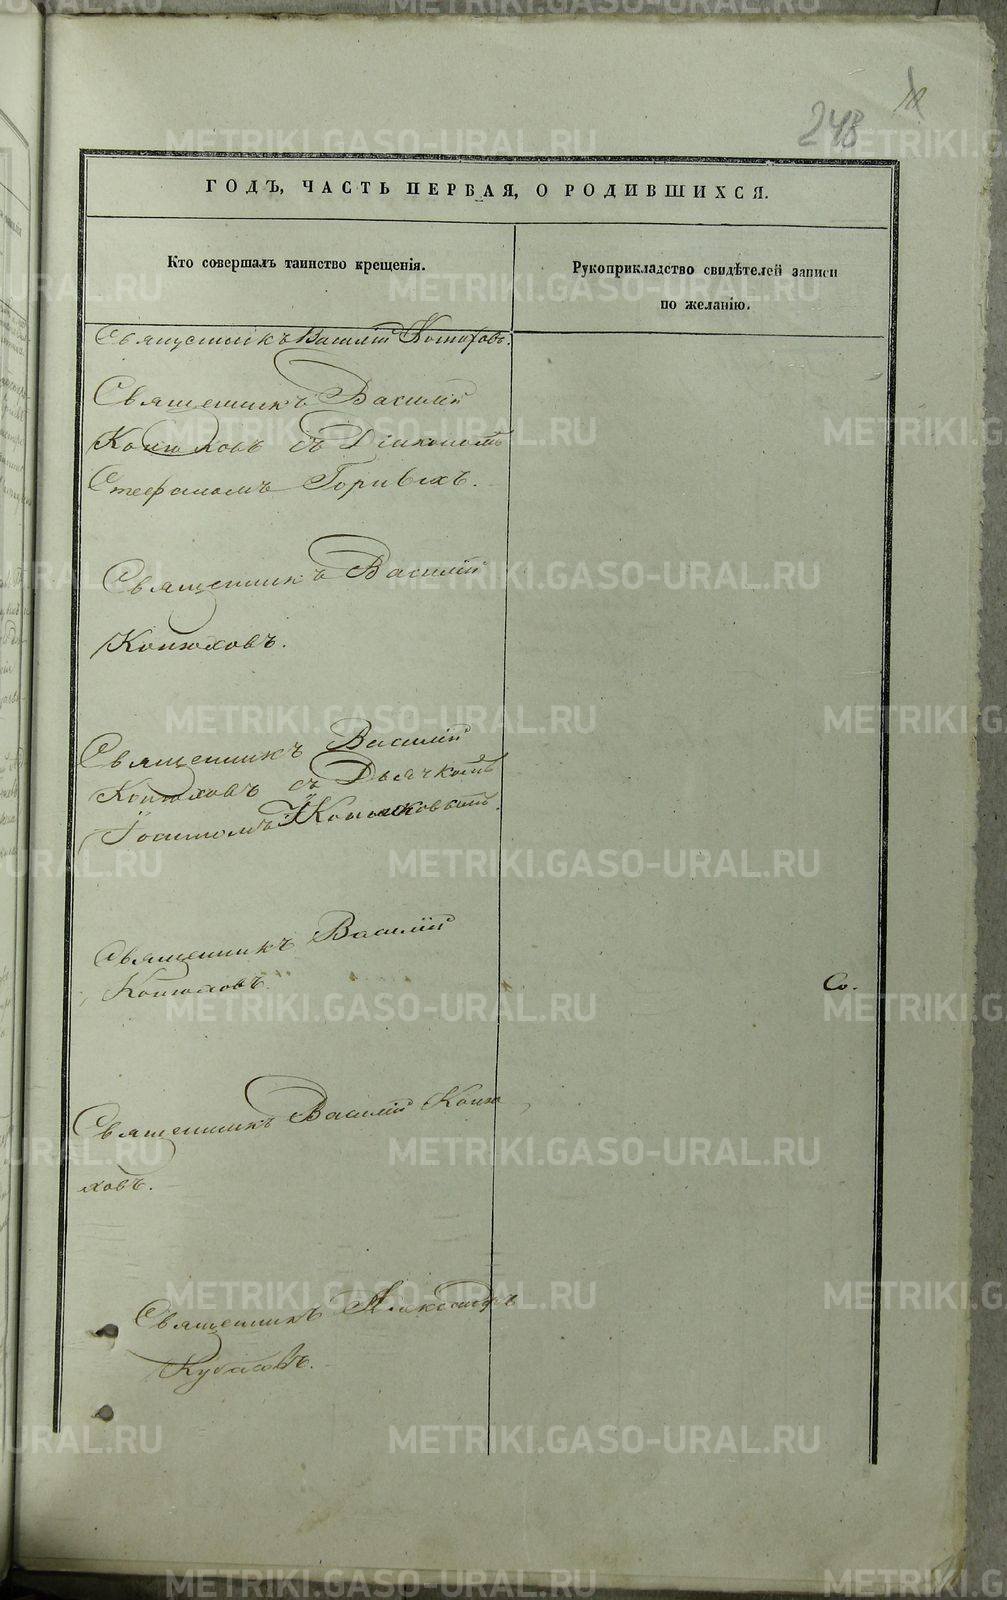 248
ГОДЪ, ЧАСТЬ ПЕРВАЯ, О РОДИВШИХСЯ.
Кто совершалъ таинство крещенія.
Рукоприкладство свидѣтелей записи
по желанію.
Священникъ Василій
Священникъ Василій
Конюховъ съ Діякономъ
Стефаномъ Горныхъ.
Священникъ Василій
Конюховъ.
Священникъ Василій
Конюховъ съ Дьячкомъ
Священникъ Василій
Конюховъ.
Со.
Священникъ Василій Коню
ховъ.
Священникъ Александръ
Кубасовъ.
METRIKI.GASO-URAL.RU